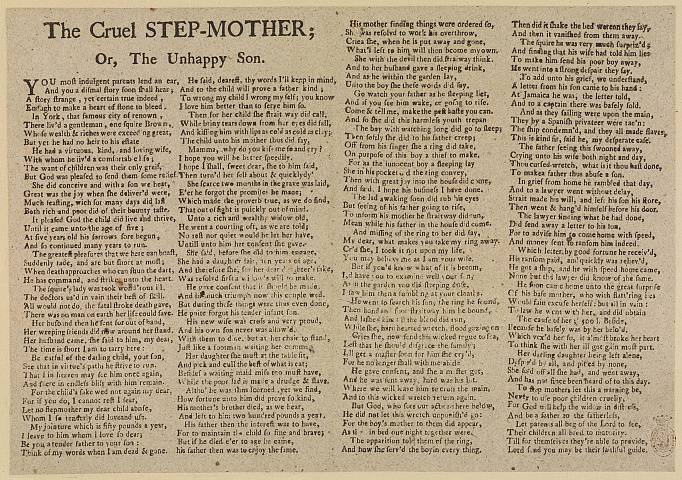 The Cruel STEP-MOTHER;
Or, The Unhappy Son.
YOU most indulgent parents lend an ear,
And you a dismal story soon shall hear;
A story strange, yet certain true indeed,
Enough to make a heart of stone to bleed.
In York, that famous city of renown,
There liv'd a gentleman, one squire Brown,
Whose wealth & riches were exceeding great,
But yet he had no heir to his estate
He had a virtuous, kind, and loving wife,
With whom he liv'd a comfortable life;
The want of children was their only grief,
But God was pleased to send them some relief.
She did conceive and with a son was heart,
Great was the joy when she deliver'd were
Much feasting, wich for many days did last
Both rich and poor did of their bounty taste.
It pleased God the child did live and thrive,
Until it came unto the age of five;
At five years old his sorrows sore begun,
And so continued many years to run.
The greatest pleasures that we here can boast,
Suddenly fade, and are but short at most;
When death approaches who can shun the dart,
He has command, and strikes unto the heart
The squire's lady was took
The doctors us'd in vain their best of skill.
All would not do, the fatal stroke death gave,
There was no man on earth her life could save.
Her husband then she sent for out of hand,
Her weeping friends did all around her stand
Her husband came, she said to him, my dear,
The time is short I am to tarry here
Be careful of the darling child, your son,
See that in virtue's paths he strive to run.
That I in heaven may see him once again,
And there in endless bliss with him remain.
For the child's sake wed not again my dear,
For if you do, I cannot tell I fear,
Let no stepmother my dear child abuse,
Whom I so tenderly did love and use.
My jointure which is fifty pounds a year,
I leave to him whom I love so dear;
Be you a tender father to your son;
Think of my words when I am dead & gone.
He said, dearest, thy words I'll keep in mind,
And to the child will prove a father kind,
To wrong my child I wrong myself; you know
I love him better than to serve him so.
Then for her child she strait way did call,
While briny tears down from her eyes did fall,
And kissing him with lips as cold as cold as clay;
The child unto his mother thus did say,
Mamma, why do you kiss me and cry?
I hope you will be better speedily,
I hope I shall, sweet dear, she to him said,
Then turn'd her self about & quickly dy'd
She scarce two months in the grave was laid,
E'er he forgot the promise he made;
Which made the proverb true, as we do find,
That out of sight is quickly out of mind.
Unto a rich and wealthy widow old,
He went a courting off, as we are told;
No rest nor quiet would he let her have,
Untill unto him her consent she gave
She said, before she did to him engage,
She had a daughter fair, ten years of age,
And therefore she, for her dear daughter's sake,
Was resolved first a
He gave consent that it should be made.
And in such triumph now this couple wed.
But during these things were thus even done,
He quite forgot his tender infant son.
His new wife was cross and very proud,
And his own son never was allow'd.
With them to dine, but at her chair to stand,
Just like a footman waiting her command.
Her daughter she must at the table sit,
And pick and cull the best of what is eat;
Besides a waiting maid miss she must have,
While the poor lad is made a drudge & slave.
Altho' he was thus scorned, yet we find,
How fortune unto him did prove so kind,
His mother's brother died, as we hear,
And left to him two hundred pounds a year.
His father then the interest was to have,
For to maintain the child so fine and brave;
But if he died e'er to age he came,
his father then was to enjoy the same.
His mother finding things were ordered so,
She was resolved to work his overthrow,
Cries she, when he is put away and gone,
What's left to him will then become my own.
She with the devil then did straitway think.
And to her husband gave a sleeping drink,
And as he within the garden lay,
Unto the boy she these words did say,
Go watch your father as he sleeping lies,
And if you see him wake, or going to rise.
Come & tell me, make the best haste you can.
And so she did this harmless youth trepan
The boy with watching long did go to sleep;
Then softly she did to his father creep;
Off from his finger she a ring did take,
On purpose of this boy a thief to make.
For as the innocent boy a sleeping lay
She in his pocket, did the ring convey,
Then with great joy into the house did come,
And said, I hope the business I have done.
The lad awaking soon did rub his eyes
But seeing of his father going to rise,
To inform his mother he straitway did run,
Mean while his father in the house did come.
And missing of the ring to her did say,
My dear, what makes you take my ring away.
Cry'd she, I took it not upon my life,
You may believe me as I am your wife.
But if you'd know what of it is become,
I'd have you to examine well your son,
As in the garden you did sleeping doze,
I saw him there fumbling at your cloaths;
He went to search his son, the ring he found,
Then hand and foot straitway him he bound,
And lashed him till the blood did run,
While she, hard hearted wretch, stood gazing on
Cries she, now send this wicked rogue to sea,
Lest that he should disgrace the family,
I'll get a master soon for him she cry'd,
For he no longer shall with me abide
He gave consent, and she a master got,
And he was sent away, hard was his lot
Where we will leave him to cross the main,
And to this wicked wretch return again.
But God, who sees our actions here below,
He did not let this wretch unpunish'd go:
For the boy's mother to them did appear,
As they in bed one night together were.
The apparition told them of the ring,
And how she serv'd the boy in every thing.
Then did it shake the bed wereon they lay,
And then it vanished from them away.
The squire he was very much surpriz'd;
And finding that his wife had told him lies
To make him send his poor boy away,
He went into a strong despair they say.
To add unto his grief, we understand,
A letter from his son came to his hand:
At Jamaica he was, the letter told,
And to a captain there was basely sold.
And as they sailing were upon the main,
They by a Spanish privateer were tak'n:
The ship condemn'd, and they all made slaves,
This is kind sir, said he, my desperate case.
The father seeing this swooned away,
Crying unto his wife both night and day,
Thou cursed wretch, what is it thou hast done,
To makes father thus abuse a son.
In grief from home he rambled that day,
And to a lawyer went without delay,
Strait made his will, and left his son his store,
Then went & hang'd himself before his door.
The lawyer finding what he had done,
Did send away a letter to his son,
For to advise him to come home with speed,
And money sent to ransom him indeed.
Which letter, by good fortune he receiv'd,
His ransom paid, and quickly was reliev'd,
He got a ship, and he with speed home came,
None but the lawyer did know of the same.
He soon came home unto the great surprise
Of his base mother, who with flatt'ring lies
Would fain excuse herself: but all in vain:
To law he went with her, and did obtain
The cause of her, & soon I. Beside,
Because he basely was by her bely'd.
Which vex'd her so, it almost broke her heart
To think she with her ill got gain must part.
Her darling daughter being left alone,
Despis'd by all, and pitied by none,
She sold off all she had, and went away,
And has not since been heard of to this day.
To step mothers let this a warning be,
Never to use poor children cruelly,
For God will help the widow in distress,
And be a father to the fatherless,
Let parents all beg of the Lord to see,
Their children all bred to maturity,
Till for themselves they're able to provide,
Lord send you may be their faithful guide.